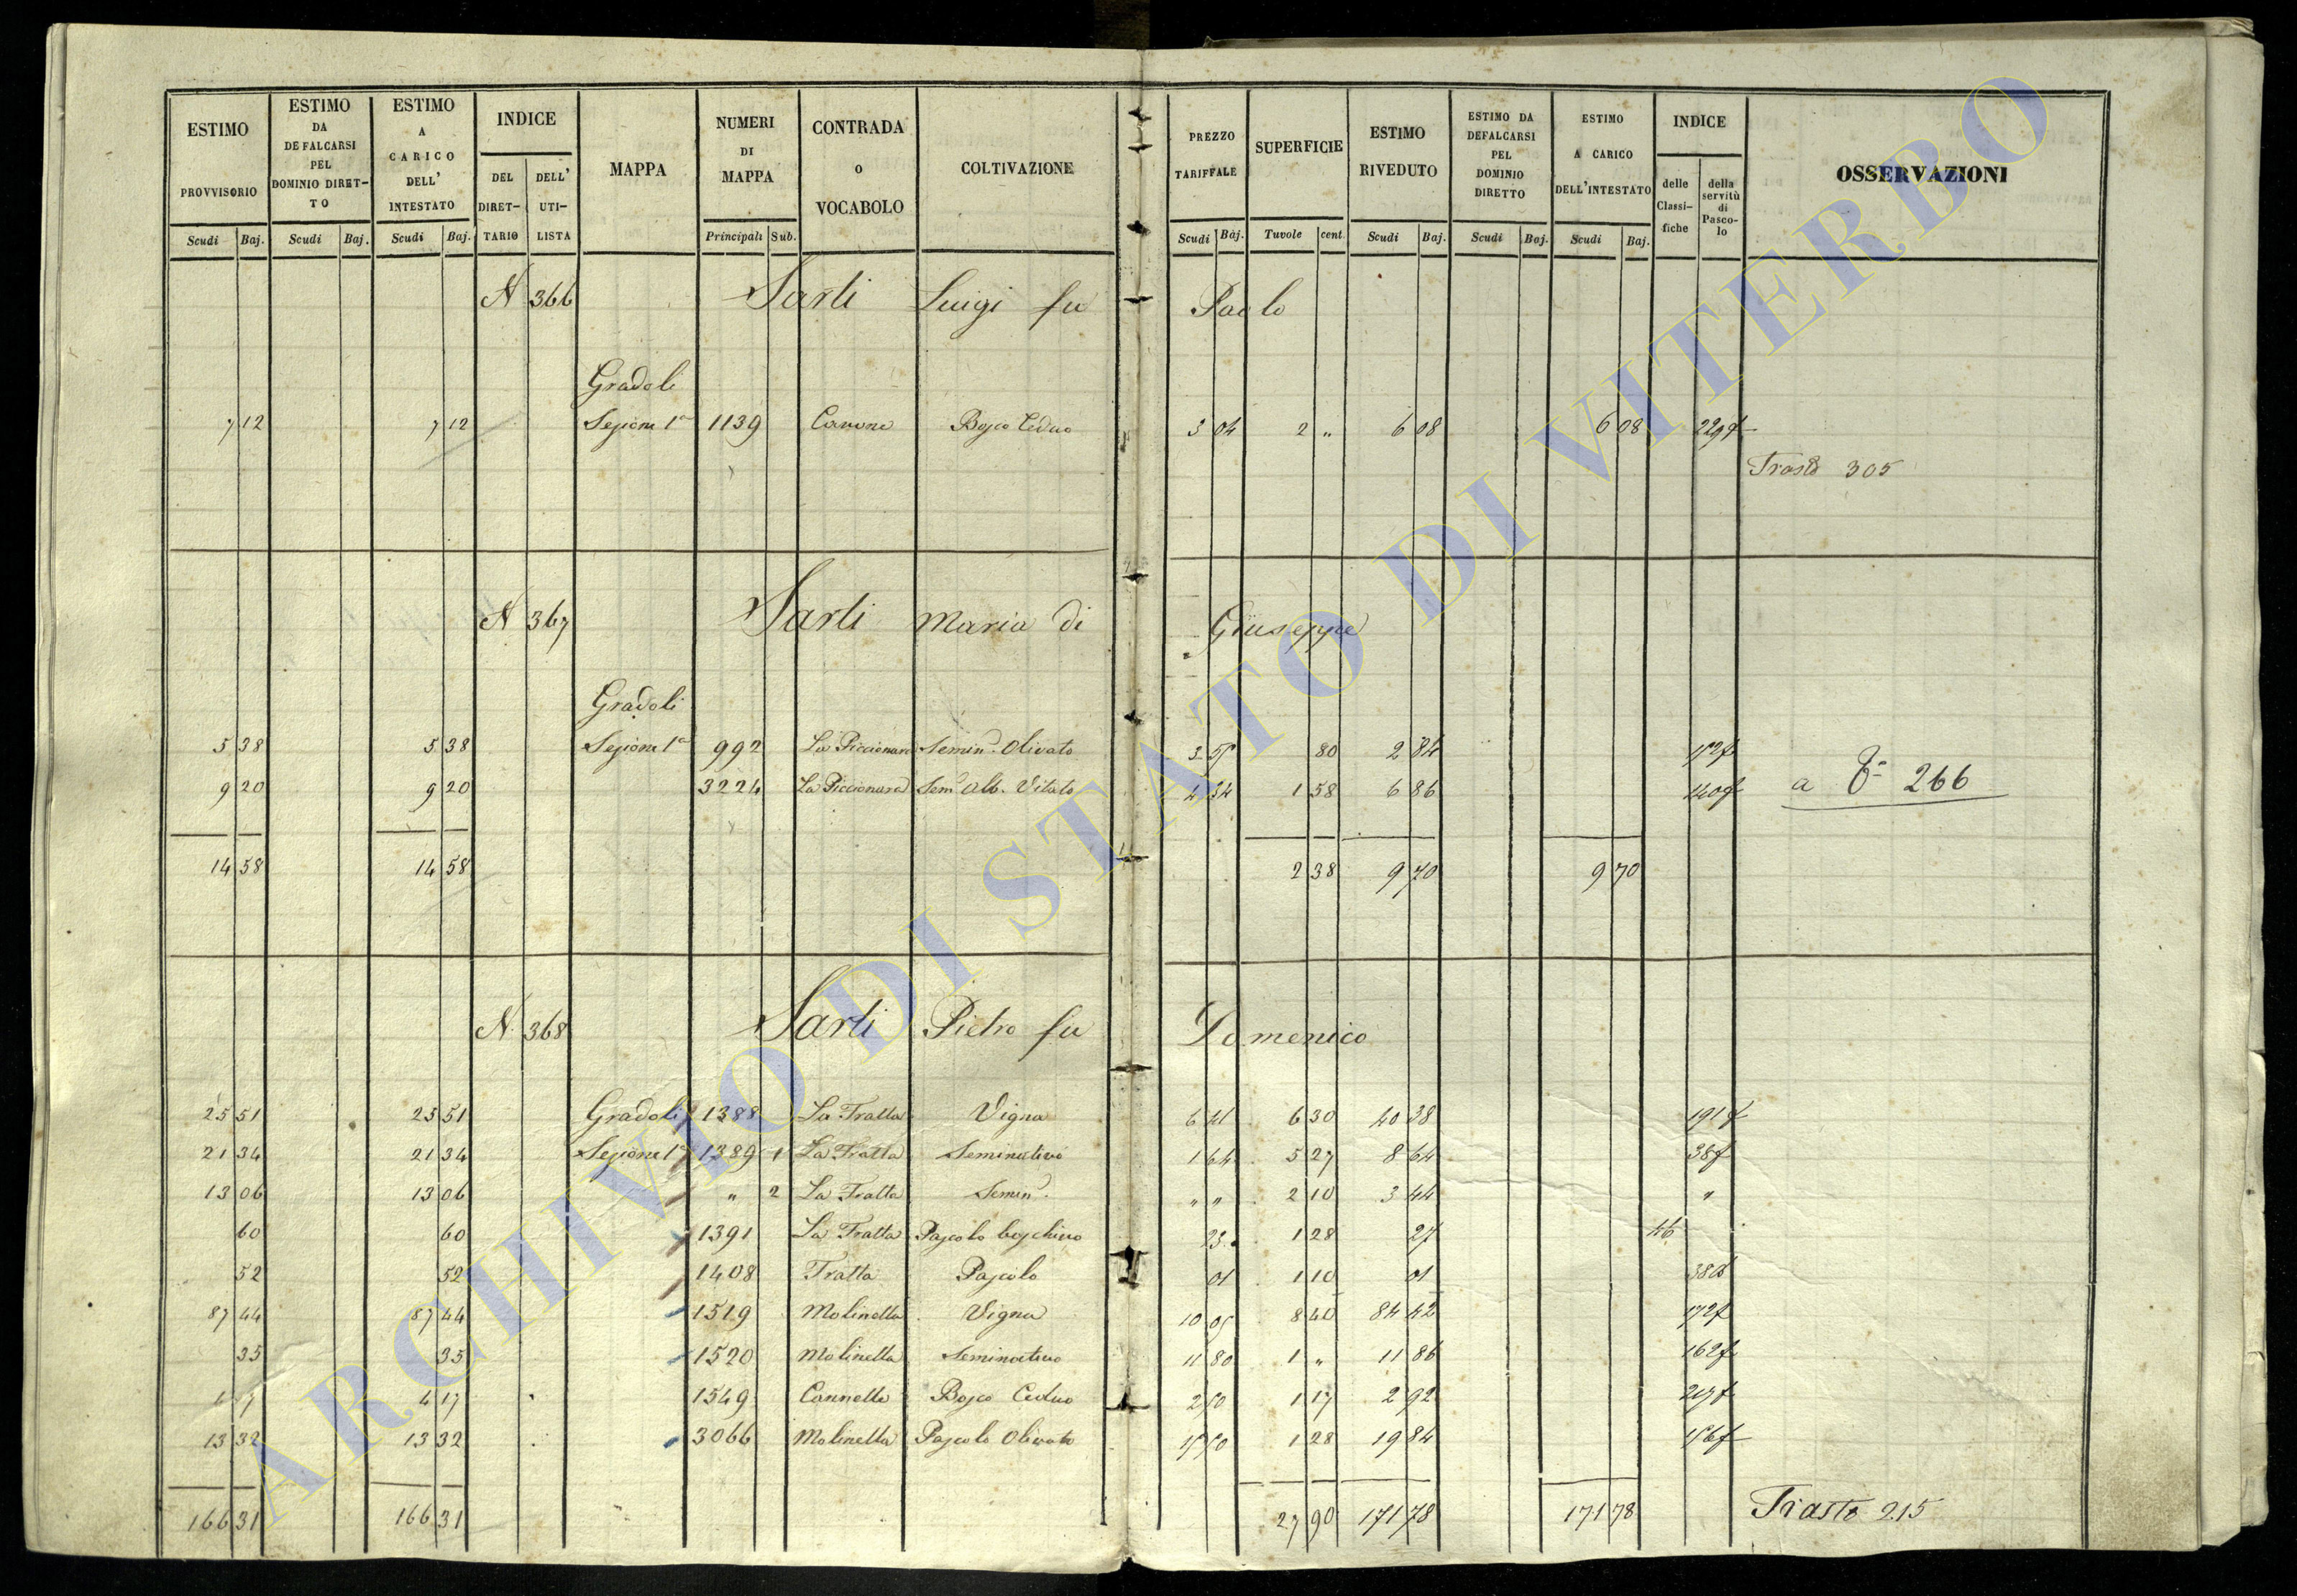 ESTIMO PROVVISORIO Scudi Baj.
ESTIMO DA DEFALCARSI PEL DOMINIO DIRET-TO Scudi Baj.
ESTIMO A CARICO DELL' INTESTATO Scudi Baj.
INDICE DEL DIRET-TARIO DELL' UTI-LISTA
MAPPA
NUMERI DI MAPPA Principali Sub.
CONTRADA o VOCABOLO
COLTIVAZIONE
PREZZO TARIFFALE Scudi Baj.
SUPERFICIE Tavole cent.
ESTIMO RIVEDUTO Scudi Baj.
ESTIMO DA DEFALCARSI PEL DOMINIO DIRETTO Scudi Baj.
ESTIMO A CARICO DELL'INTESTATO Scudi Baj.
INDICE delle Classi-fiche della servitù di Pasco-lo
OSSERVAZIONI
N 366 Sarti Luigi fu Paolo
Gradoli
7 12 7 12 Sezione 1a 1139 Bosco Ceduo 3 04 2 " 6 08 6 08 229f
Trasto 305
N 367 Sarti Maria di Giuseppe
Gradoli
5 38 5 38 Sezione 1a 992 La Piccionara Semin.o Olivato 3 55 80 2 84 152f
9 20 9 20 3224 La Piccionara Sem.o Alb. Vitato 4 34 1 58 6 86 140f
a 266
14 58 14 58 2 38 9 70 9 70
N. 368 Sarti Pietro fu Domenico
25 51 25 51 Gradoli 1388 La Tratta Vigna 6 41 6 30 40 38 191f
21 34 21 34 Sezione 1a 1389 1 La Tratta Seminativo 1 64 5 27 8 64 38f
13 06 13 06 " 2 La Tratta Semin.o " " 2 10 3 44 "
60 60 1391 La Tratta Pascolo boschivo 23 1 28 27 46
52 52 1408 Tratta Pascolo 01 1 10 01
87 44 87 44 1519 Molinella Vigna 10 05 8 40 84 42 172f
35 35 1520 Molinella Seminativo 11 80 1 " 11 86 162f
4 17 4 17 1549 Cannella Bosco Ceduo 2 50 1 17 2 92 217f
13 32 13 32 3066 Molinella Pascolo Olivato 15 50 1 28 19 84 156f
166 31 166 31 27 90 171 78 171 78 Trasto 215
ARCHIVIO DI STATO DI VITERBO